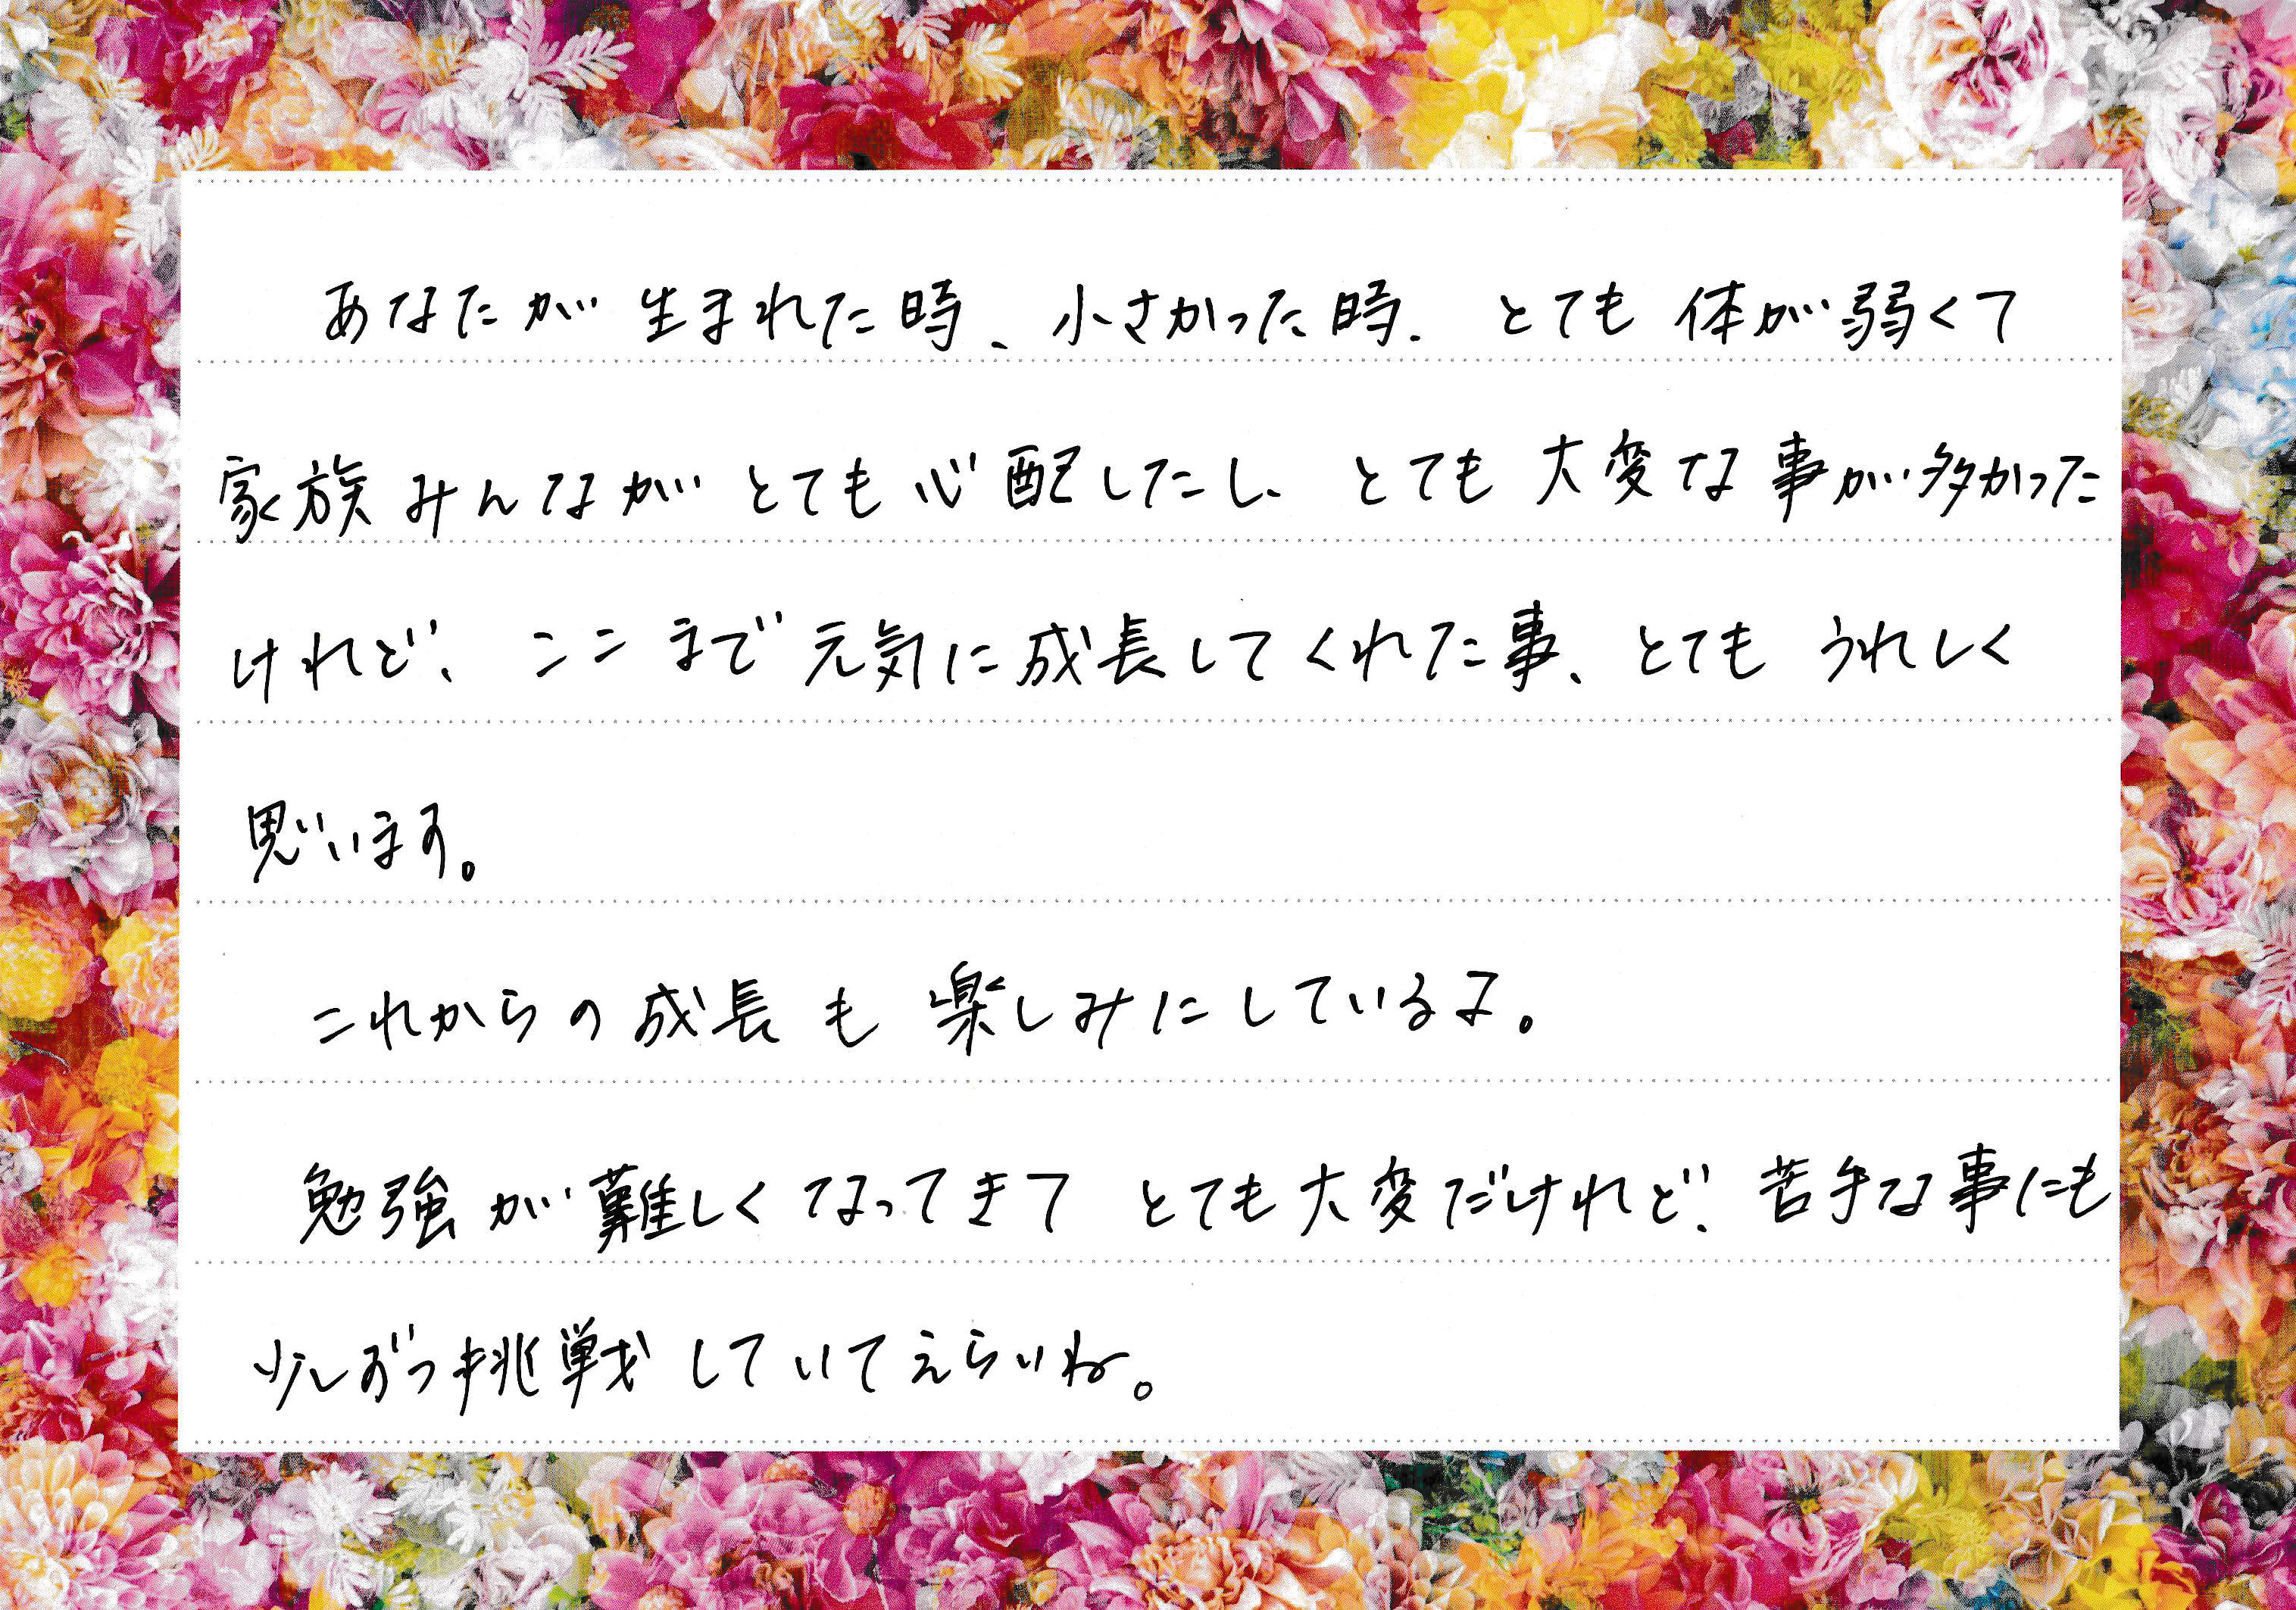 あなたが生まれた時、小さかった時、とても体が弱くて
家族みんながとても心配したし、とても大変な事が多かった
けれど、ここまで元気に成長してくれた事、とてもうれしく
思います。
これからの成長も楽しみにしているよ。
勉強が難しくなってきてとても大変だけれど、苦手な事にも
少しずつ挑戦していてえらいね。